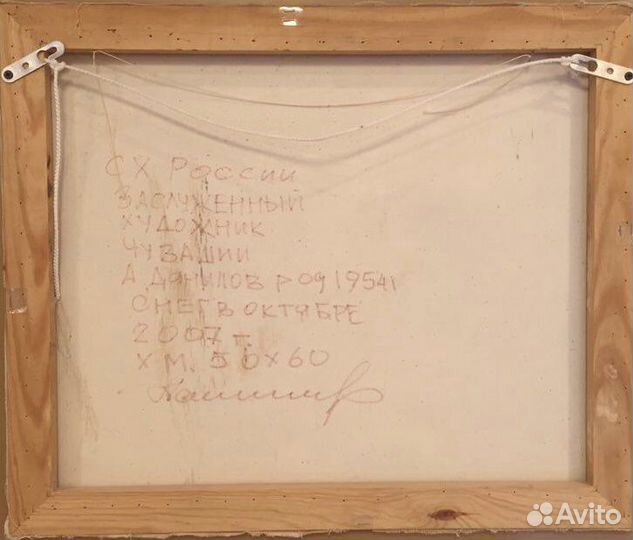 СХ РОССИИ
ЗАСЛУЖЕННЫЙ
ХУДОЖНИК
ЧУВАШИИ
А ДАНИЛОВ РОД 1954
СНЕГ В ОКТЯБРЕ
2007 г.
Х М. 50Х60
Avito